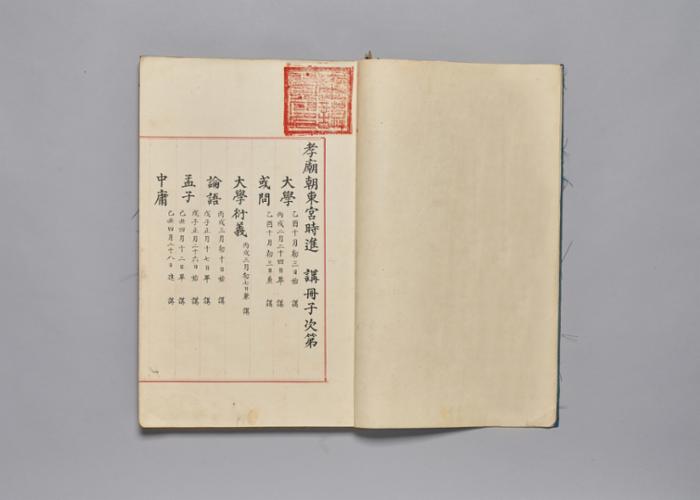 孝廟朝東宮時進 講冊子次第
大學 乙酉十月初三日始 講
丙戌二月二十四日畢 講
或問 乙酉十月初三日兼 講
大學衍義 丙戌三月初七日兼 講
論語 丙戌三月初十日始 講
戊子正月十七日畢 講
孟子 戊子正月二十六日始 講
己丑四月十二日畢 講
中庸 己丑四月二十八日進 講